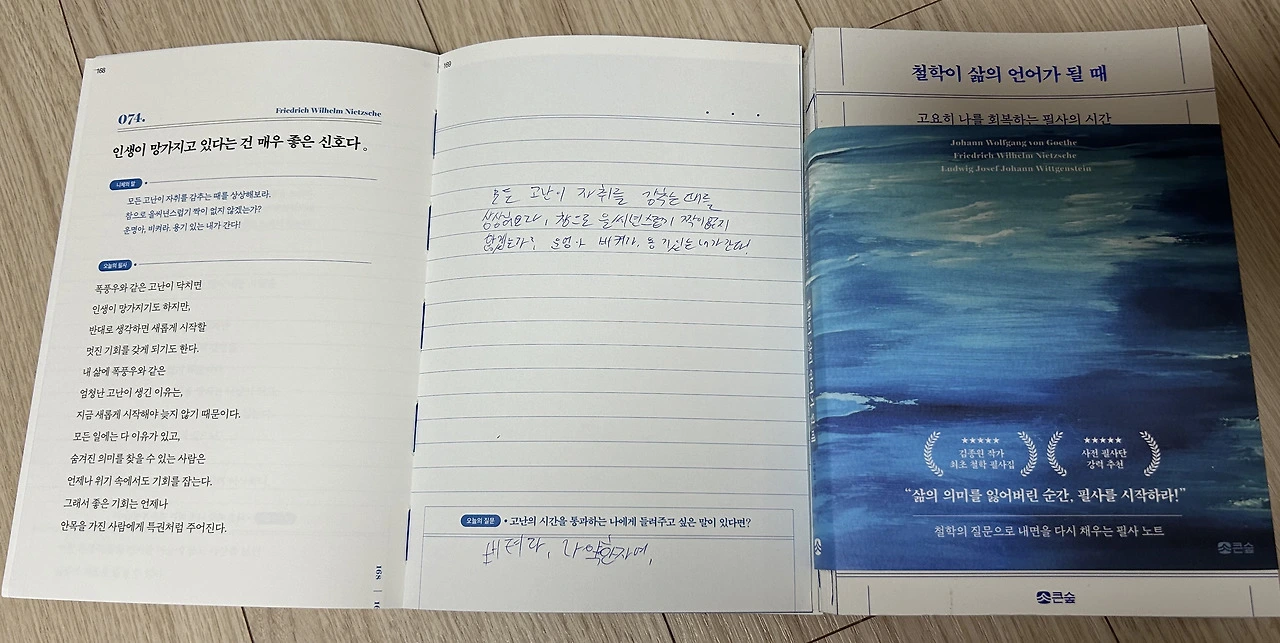 168
074.
Friedrich Wilhelm Nietzsche
인생이 망가지고 있다는 건 매우 좋은 신호다.
니체의 말
모든 고난이 자취를 감추는 때를 상상해보라.
참으로 을씨년스럽기 짝이 없지 않겠는가?
운명아, 비켜라. 용기 있는 내가 간다!
오늘의 필사
폭풍우와 같은 고난이 닥치면
인생이 망가지기도 하지만,
반대로 생각하면 새롭게 시작할
멋진 기회를 갖게 되기도 한다.
내 삶에 폭풍우와 같은
엄청난 고난이 생긴 이유는,
지금 새롭게 시작해야 늦지 않기 때문이다.
모든 일에는 다 이유가 있고,
숨겨진 의미를 찾을 수 있는 사람은
언제나 위기 속에서도 기회를 잡는다.
그래서 좋은 기회는 언제나
안목을 가진 사람에게 특권처럼 주어진다.
168
169
모든 고난이 자취를 감추는 때를
상상해보라, 참으로 을씨년스럽기 짝이없지
않겠는가? 운명아 비켜라. 용기있는 내가 간다!
오늘의 질문 • 고난의 시간을 통과하는 나에게 들려주고 싶은 말이 있다면?
버텨라, 나약한자여,
철학이 삶의 언어가 될 때
고요히 나를 회복하는 필사의 시간
Johann Wolfgang von Goethe
Friedrich Wilhelm Nietzsche
Ludwig Josef Johann Wittgenstein
김종원 작가
최초 철학 필사집
사전 필사단
강력 추천
“삶의 의미를 잃어버린 순간, 필사를 시작하라!”
철학의 질문으로 내면을 다시 채우는 필사 노트
큰숲
큰숲